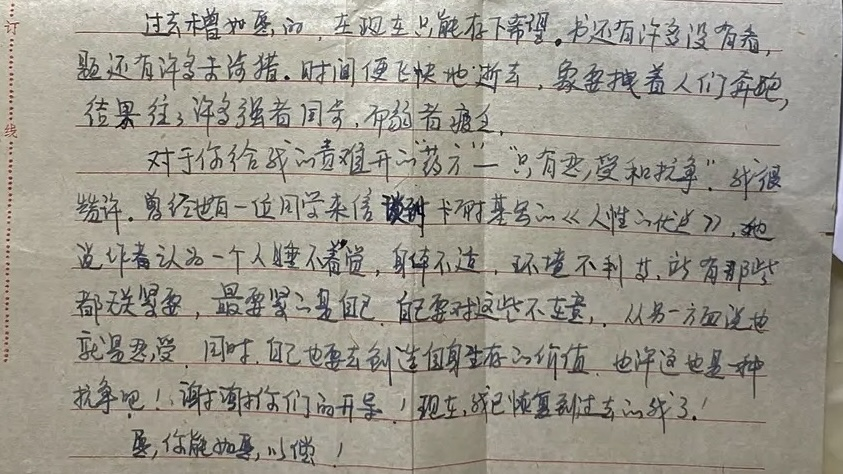 订
线
过去不曾如愿的，在现在只能存下希望。书还有许多没有看，
题还有许多未涉猎。时间便飞快地逝去，象要拽着人们奔跑，
结果往往许多强者同步，而弱者疲乏。
对于你给我的责难开的"药方"—"只有忍受和抗争"。我很
赞许。曾经也有一位同学来信谈到卡耐基写的《人性的优点》，她
说作者认为一个人睡不着觉，身体不适，环境不利等，所有那些
都无关紧要，最要紧的是自己，自己要对这些不在意，从另一方面说也
就是忍受，同时，自己也要去创造自身生存的价值，也许这也是一种
抗争吧！谢谢你们的开导！现在，我已恢复到过去的我了！
愿，你能如愿，以偿！